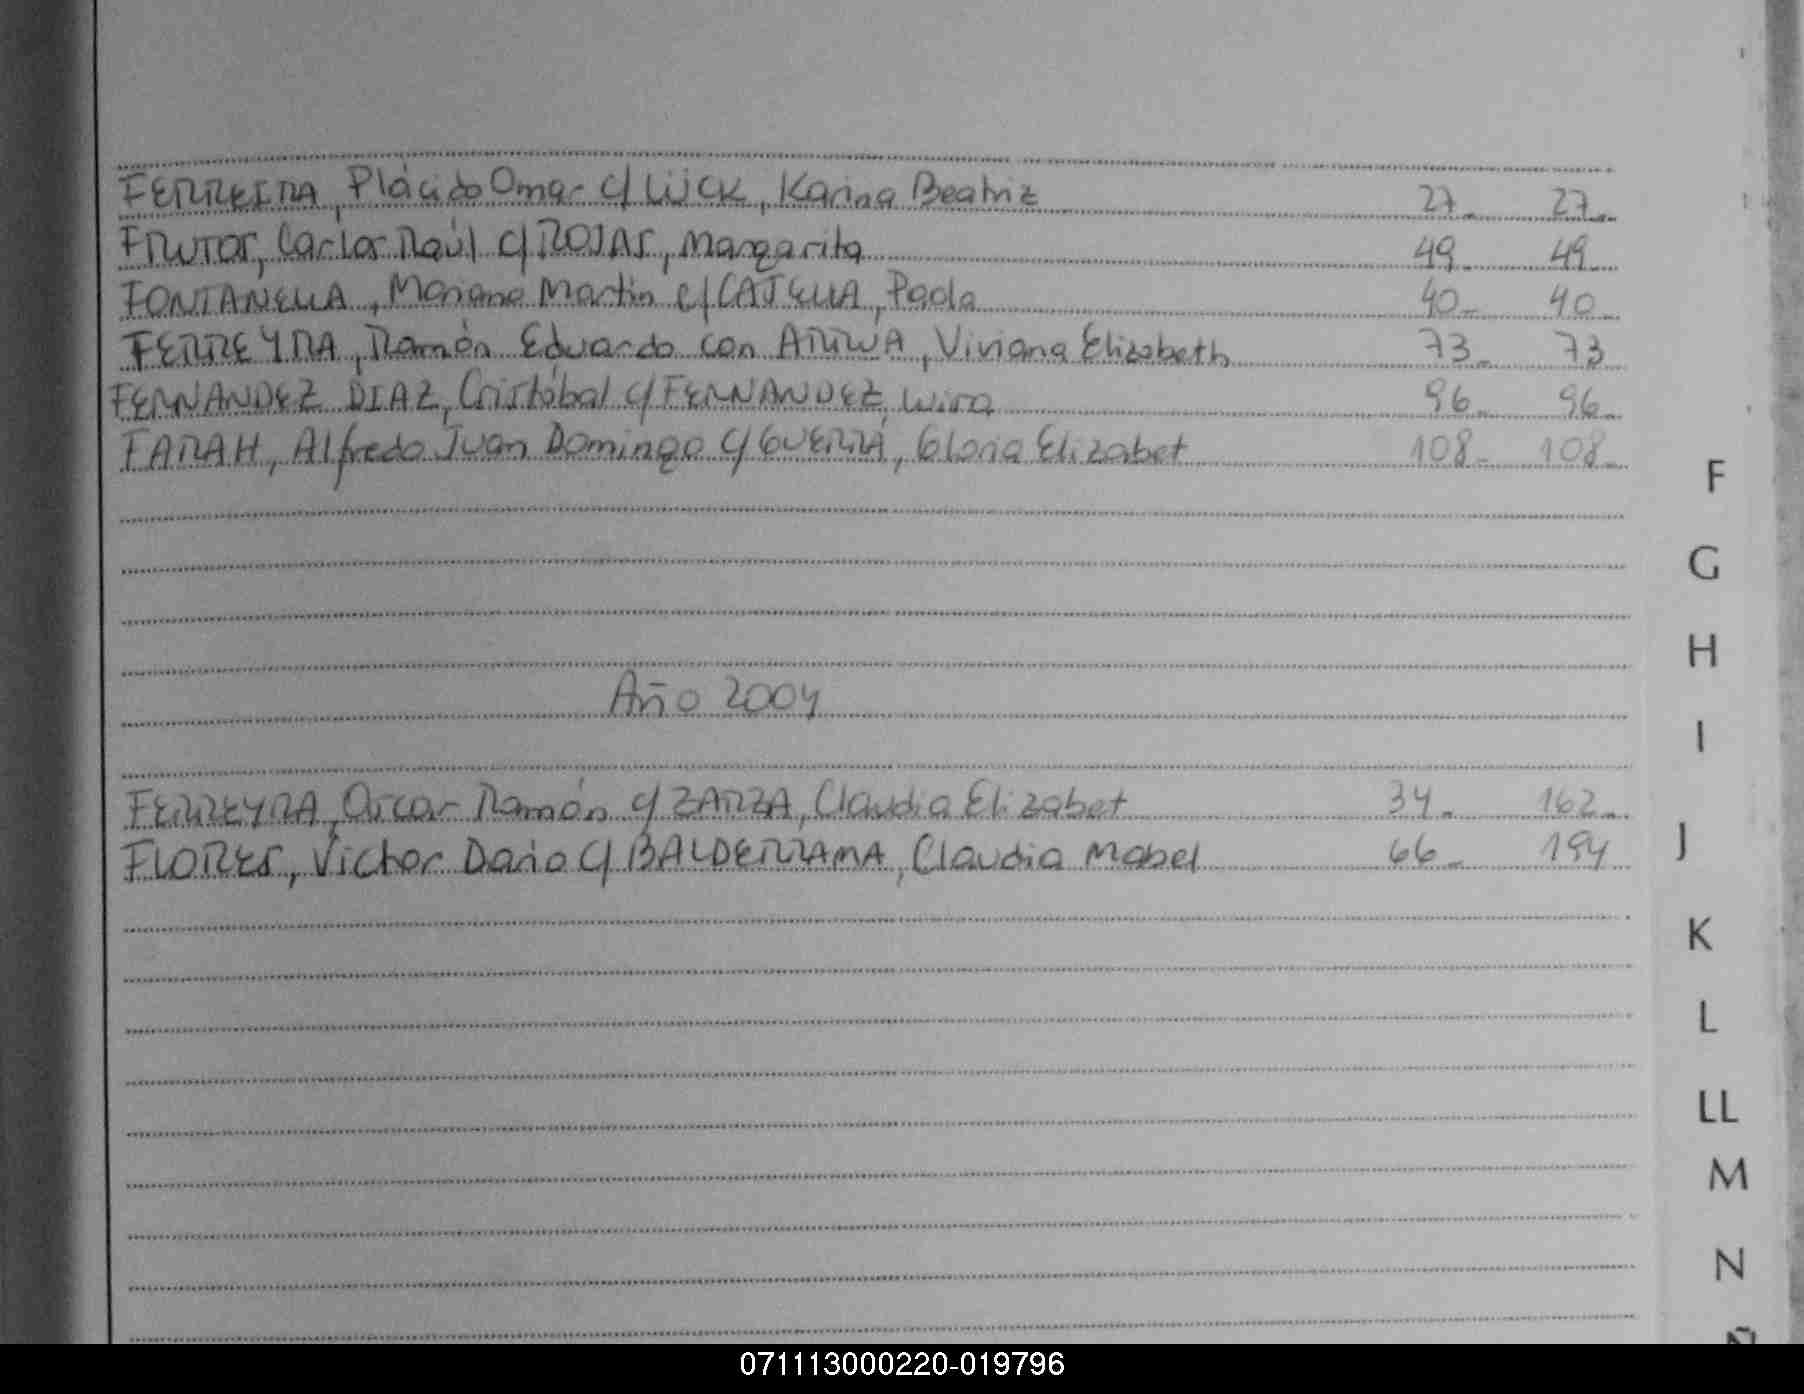 FERREIRA, Plácido Omar c/ LÜCK, Karina Beatriz 27_ 27_
FRUTOS, Carlos Raúl c/ ROJAS, Margarita 49_ 49_
FONTANELLA, Mariano Martin c/ CASELLA, Paola 40_ 40_
FERREYRA, Ramón Eduardo con Viviana Elizabeth 73_ 73
FERNANDEZ DIAZ, Cristóbal c/ FERNANDEZ 96_ 96_
FARAH, Alfredo Juan Domingo c/ GUERRA, Gloria Elizabet 108_ 108_
Año 2004
FERREYRA, Oscar Ramón c/ ZARZA, Claudia Elizabet 34_ 162_
FLORES, Victor Dario c/ BALDERRAMA, Claudia Mabel 66_ 194
F
G
H
I
J
K
L
LL
M
N
Ñ
071113000220-019796